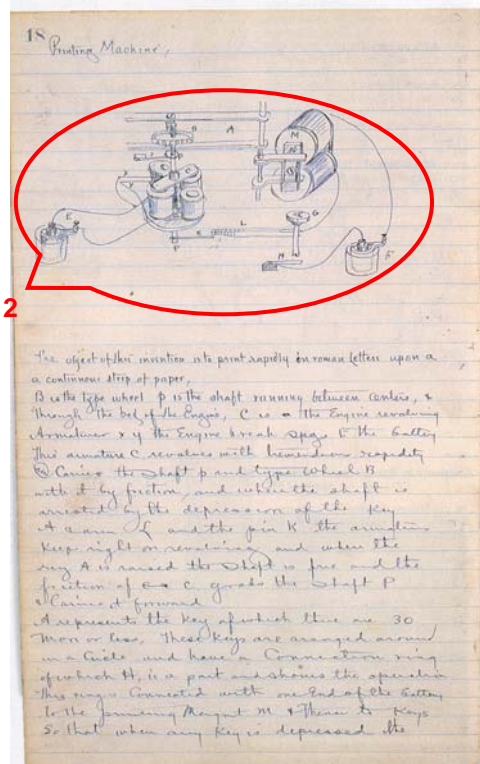 18
Printing Machine,
B
A
M
N
O
E
C
G
K
L
P
H
F
2
The object of this invention is to print rapidly in roman letters upon a
a continuous strip of paper,
B is the type wheel P is the shaft running between centers, &
through the bed of the Engine, C is the Engine revolving
Armature x y the Engine break F the battery
This armature C revolves with tremendous rapidity
Carries the shaft p and type wheel B
with it by friction, and when the shaft is
arrested by the depression of the Key
and the pin K the armature
Keep right on revolving and when the
key A is raised the shaft is free and the
friction of C the shaft P
& Carries it forward
A represents the Key of which there are 30
more or less, These Keys are arranged around
in a Circle and have a Connection ring
of which H, is a part and shows the operation
This ring is Connected with one End of the battery
to the Magnet M & thence to Keys
So that when any Key is depressed the